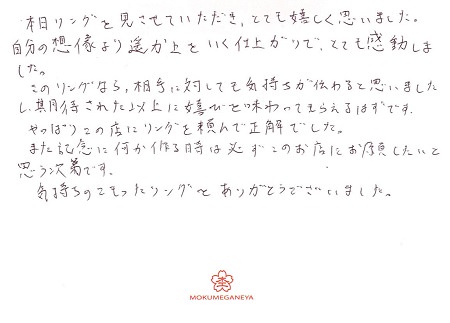 本日リングを見させていただき、とても嬉しく思いました。
自分の想像より遥か上をいく仕上がりで、とても感動しま
した。
このリングなら、相手に対しても気持ちが伝わると思いました
し、期待された以上に喜びを味わってもらえるはずです。
やっぱりこの店にリングを頼んで正解でした。
また記念に何か作る時は必ずこのお店にお願したいと
思う次第です。
気持ちのこもったリングを ありがとうございました。
MOKUMEGANEYA